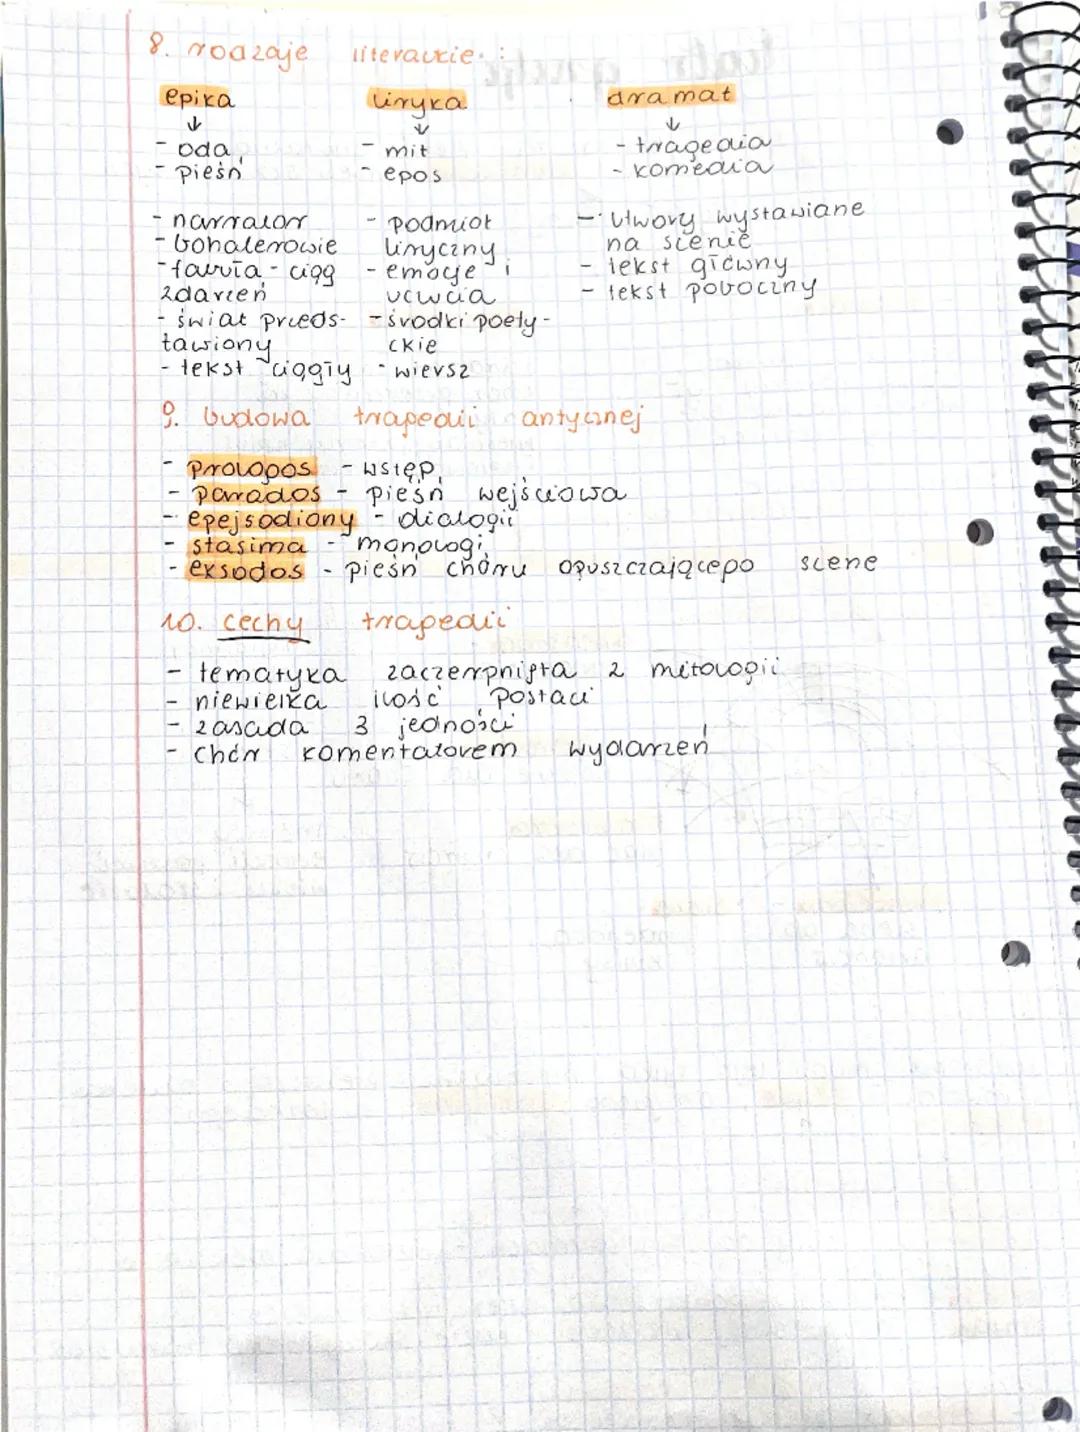 8. rodzaje literackie:
epika liryka dramat
↓ ↓ ↓
- oda - mit - tragedia
- pieśń - epos - komedia
- narrator - podmiot - Utwory wystawiane
- bohaterowie liryczny na scenie
- fabuła - ciąg - emocje i - tekst główny
zdarzeń uczucia - tekst poboczny
- świat przeds- - środki poety-
tawiony ckie
- tekst ciągły - wiersz
9. budowa tragedii antycznej
- prologos - wstęp
- parados - pieśń wejściowa
- epejsodiony - dialogii
- stasima - monologi
- eksodos - pieśń chóru opuszczającego scene
10. cechy tragedii
- tematyka zaczerpnięta z mitologii
- niewielka ilość postaci
- zasada 3 jedności
- chór komentatorem wydarzeń